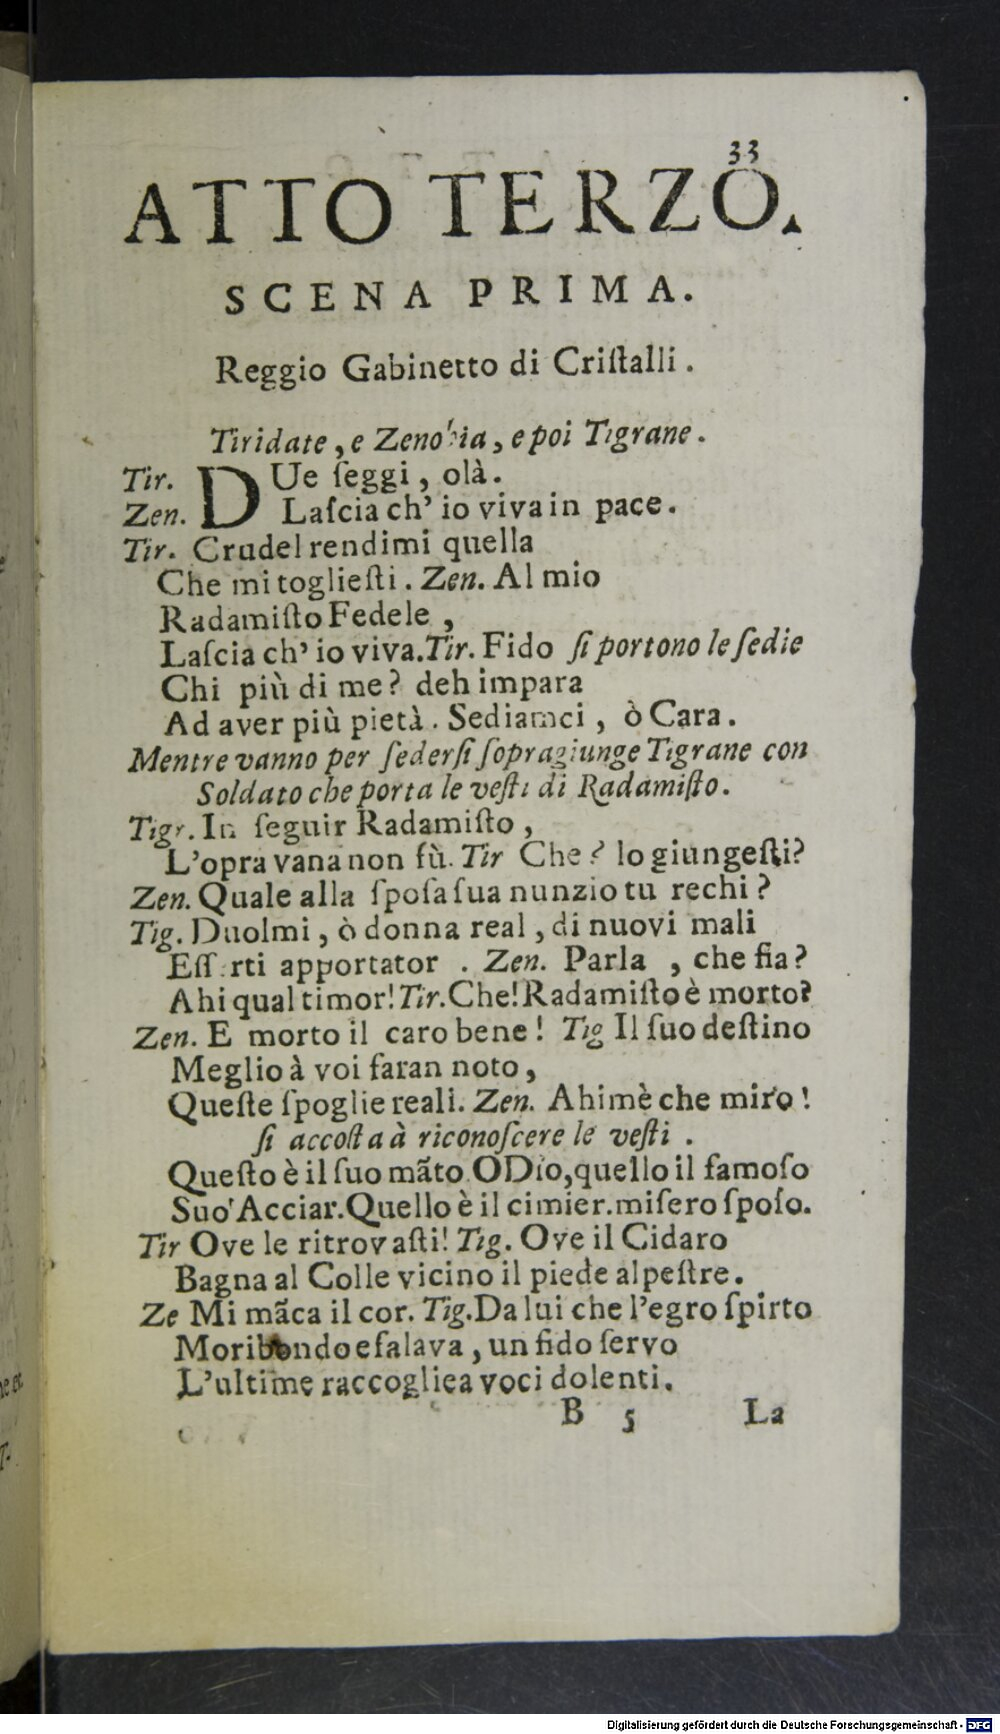 33
ATTO TERZO.
SCENA PRIMA.
Reggio Gabinetto di Criſtalli.
Tiridate, e Zenobia, e poi Tigrane.
Tir. DUe ſeggi, olà.
Zen. Laſcia ch' io viva in pace.
Tir. Crudel rendimi quella
Che mi toglieſti. Zen. Al mio
Radamiſto Fedele,
Laſcia ch' io viva. Tir. Fido ſi portono le ſedie
Chi più di me? deh impara
Ad aver più pietà. Sediamci, ò Cara.
Mentre vanno per ſederſi ſopragiunge Tigrane con
Soldato che porta le veſti di Radamiſto.
Tigr. In ſeguir Radamiſto,
L'opra vana non fù. Tir Che? lo giungeſti?
Zen. Quale alla ſpoſa ſua nunzio tu rechi?
Tig. Duolmi, ò donna real, di nuovi mali
Eſſerti apportator. Zen. Parla, che fia?
Ahi qual timor! Tir. Che! Radamiſto è morto?
Zen. E morto il caro bene! Tig Il ſuo deſtino
Meglio à voi faran noto,
Queſte ſpoglie reali. Zen. Ahimè che miro!
ſi accoſta à riconoſcere le veſti.
Queſto è il ſuo mãto O Dio, quello il famoſo
Suo' Acciar. Quello è il cimier. miſero ſpoſo.
Tir Ove le ritrovaſti! Tig. Ove il Cidaro
Bagna al Colle vicino il piede alpeſtre.
Ze Mi mãca il cor. Tig. Da lui che l'egro ſpirto
Moribondo eſalava, un fido ſervo
L'ultime raccogliea voci dolenti.
B 5 La
Digitalisierung gefördert durch die Deutsche Forschungsgemeinschaft - DFG